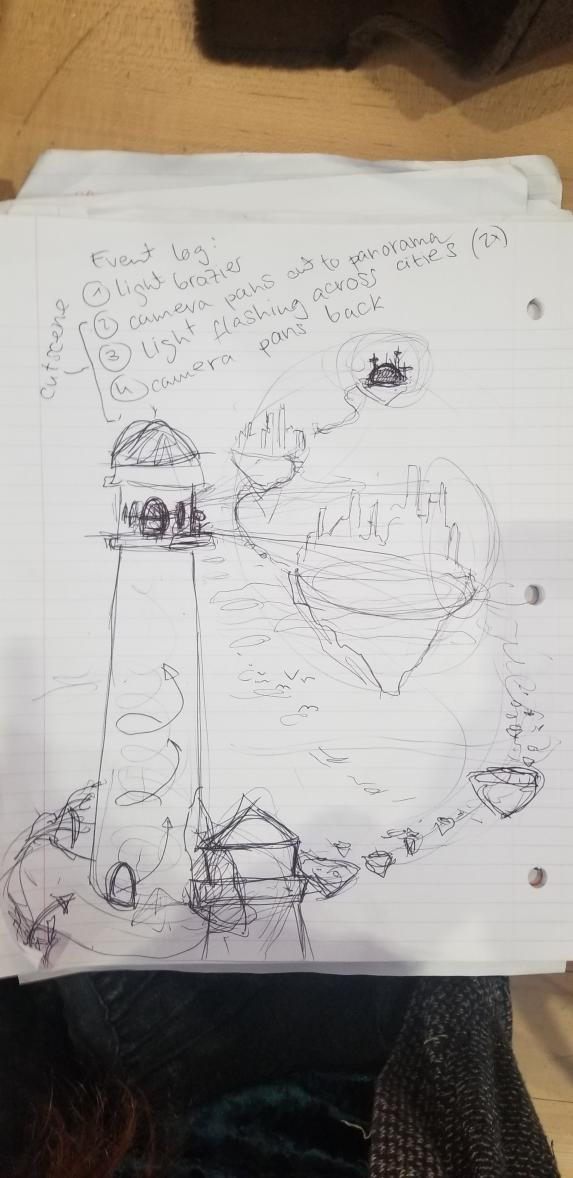 Event log:
① light brazier
② camera pans out to panorama
③ light flashing across cities (2x)
④ camera pans back
cutscene